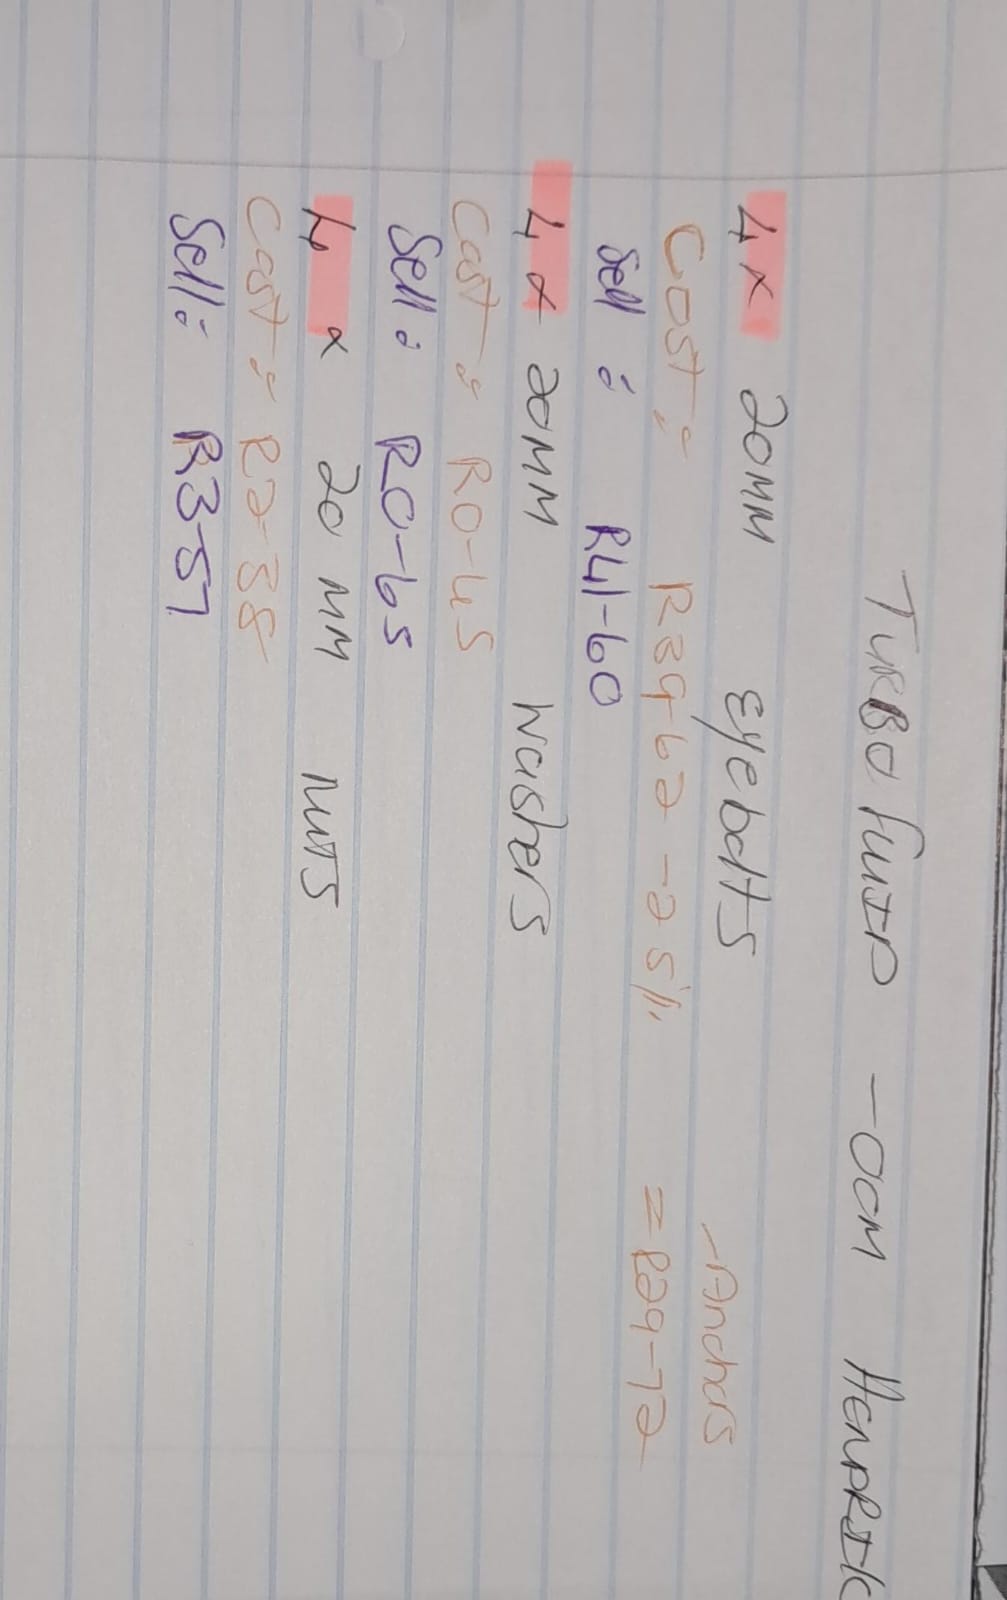 TURBO fluID - OOM HENDRIK
4x 20MM eyebolts - Anchors
Cost: R39-62 -25% = R29-72
Sell: R41-60
4x 20MM washers
Cost: R0-45
Sell: R0-65
4x 20 MM NUTS
Cost: R2-38
Sell: R3-57